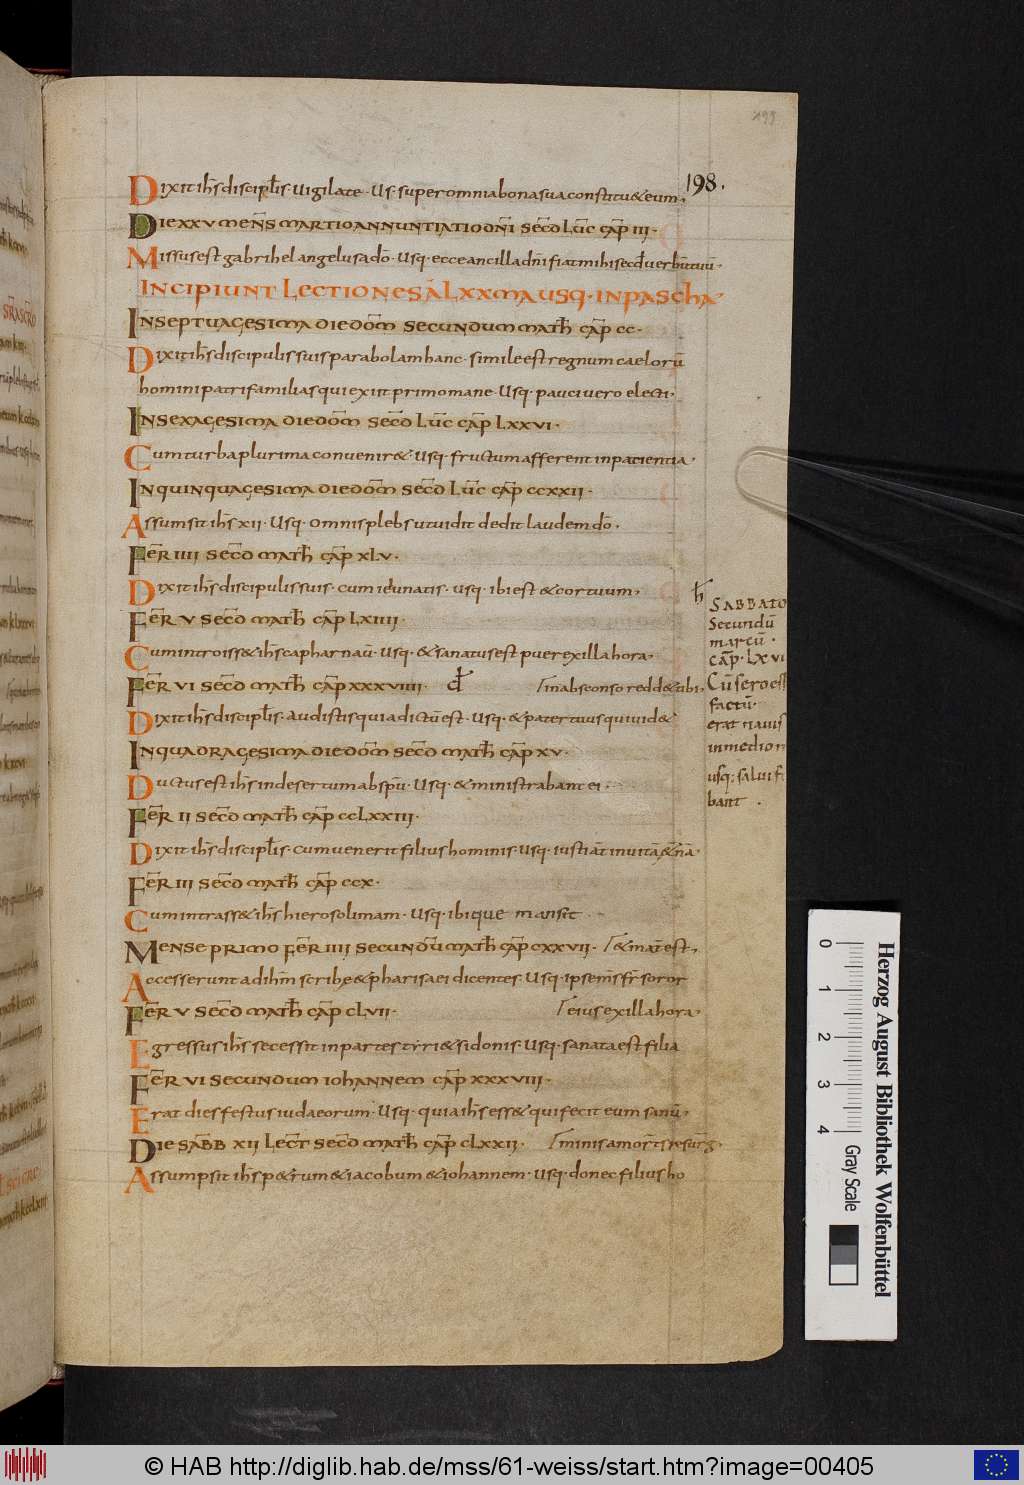 199
198.
Dixit ihs discipłis. Uigilate. Us. super omnia bona sua constitu&eum.
DIE XXV MENS̄ MARTIO ANNUNTIATIO DN̄I SECD̄ LUC̄ CAP̄ III.
Missus est gabrihel angelus a dō. Usq. ecce ancilla dn̄i fiat mihi secd̄ uerbūtuū.
INCIPIUNT LECTIONES Ā LXXMA USQ. IN PASCHA
IN SEPTUAGESIMA DIE DOM̄ SECUNDUM MATH̄ CAP̄ CC.
Dixit ihs̄ discipulis suis parabolam hanc. simile est regnum caelorū
homini patrifamilias qui exiit primo mane. Usq. pauci uero electi.
IN SEXAGESIMA DIE DOM̄ SECD̄ LUC̄ CAP̄ LXXVI.
Cum turba plurima conuenir&. Usq. fructum afferent in patientia.
IN QUINQUAGESIMA DIE DOM̄ SECD̄ LUC̄ CAP̄ CCXXII.
Assumsit ihs̄ xii. Usq. omnis plebs ut uidit dedit laudem dō.
FER̄ IIII SECD̄ MATH̄ CAP̄ XLV.
Dixit ihs̄ discipulis suis. cum ieiunatis. usq. ibi est & cor tuum.
FER̄ V SECD̄ MATH̄ CAP̄ LXIIII.
Cum introiss& ihs̄ capharnaū. Usq. & sanatus est puer ex illa hora.
FER̄ VI SECD̄ MATH̄ CAP̄ XXXVIIII. in absconso redd& tibi.
Dixit ihs̄ discipłis. audistis quia dictū est. Usq. & pater tuus qui uid&
IN QUADRAGESIMA DIE DOM̄ SECD̄ MATH̄ CAP̄ XV.
Ductus est ihs̄ in desertum ab sp̄u. Usq. & ministrabant ei.
FER̄ II SECD̄ MATH̄ CAP̄ CCLXXIII.
Dixit ihs̄ discipłis. cum uenerit filius hominis. Usq. iusti āt in uitā &nā.
FER̄ III SECD̄ MATH̄ CAP̄ CCX.
Cum intrass& ihs̄ hierosolimam. Usq. ibique mansit.
MENSE PRIMO FER̄ IIII SECUNDŪ MATH̄ CAP̄ CXXVII. & mat̄ est.
Accesserunt ad ihm̄ scribe & pharisaei dicentes. Usq. ipse meūs fr̄ soror
FER̄ V SECD̄ MATH̄ CAP̄ CLVII. eius ex illa hora.
Egressus ihs̄ secessit in partes tyri & sidonis. Usq. sanata est filia
FER̄ VI SECUNDUM IOHANNEM CAP̄ XXXVIII.
Erat dies festus iudaeorum. Usq. quia ihs̄ ess& qui fecit eum sanū.
DIE SABB̄ XII LECT̄ SECD̄ MATH̄ CAP̄ CLXXII. minis a mort̄is resurḡ.
Assumpsit ihs̄ p&rum & iacobum & iohannem. Usq. donec filius ho
SABBATO
Secundū
marcū.
CAP̄. LXVI
Cū sero ess
factū.
erat nauis
in medio
usq: salui f
bant.
Herzog August Bibliothek Wolfenbüttel
0 1 2 3 4
Gray Scale
© HAB http://diglib.hab.de/mss/61-weiss/start.htm?image=00405